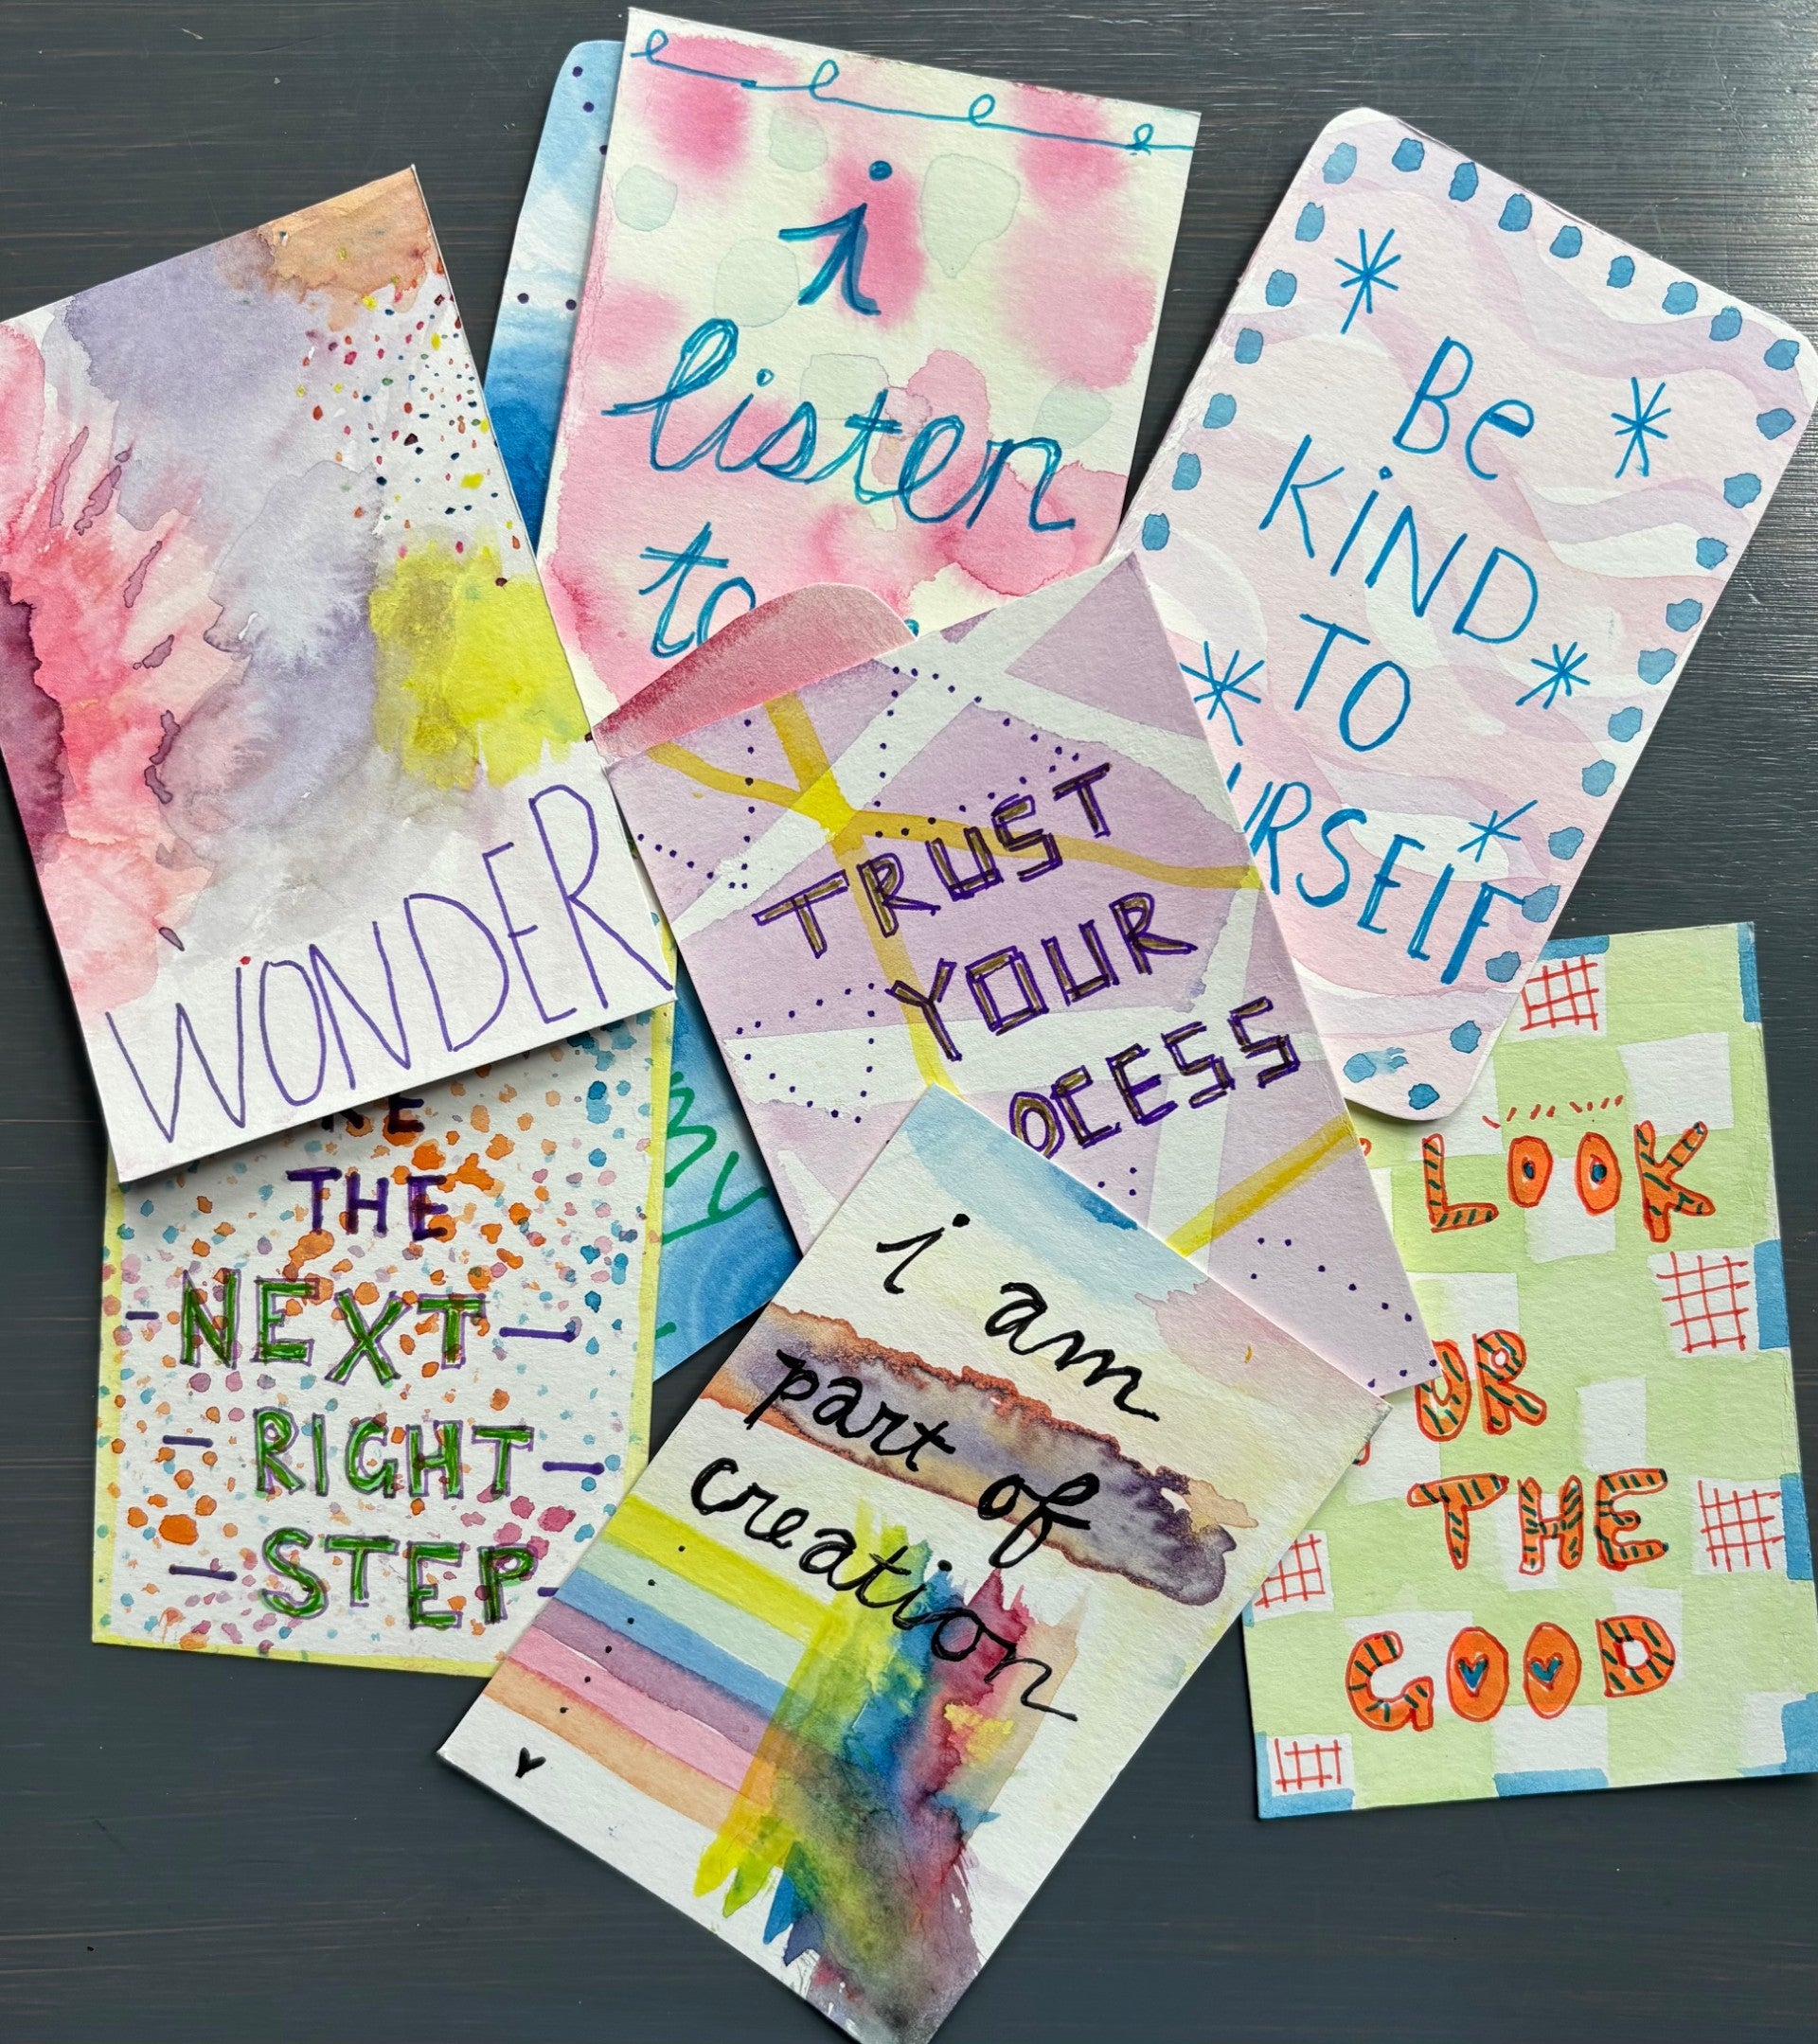 i
listen
to
Be
KiND
TO
URSELF
WONDER
TRUST
YOUR
OCESS
KE
THE
NEXT
RIGHT
STEP
MY
i am
part of
creation
LOOK
OR
THE
GOOD